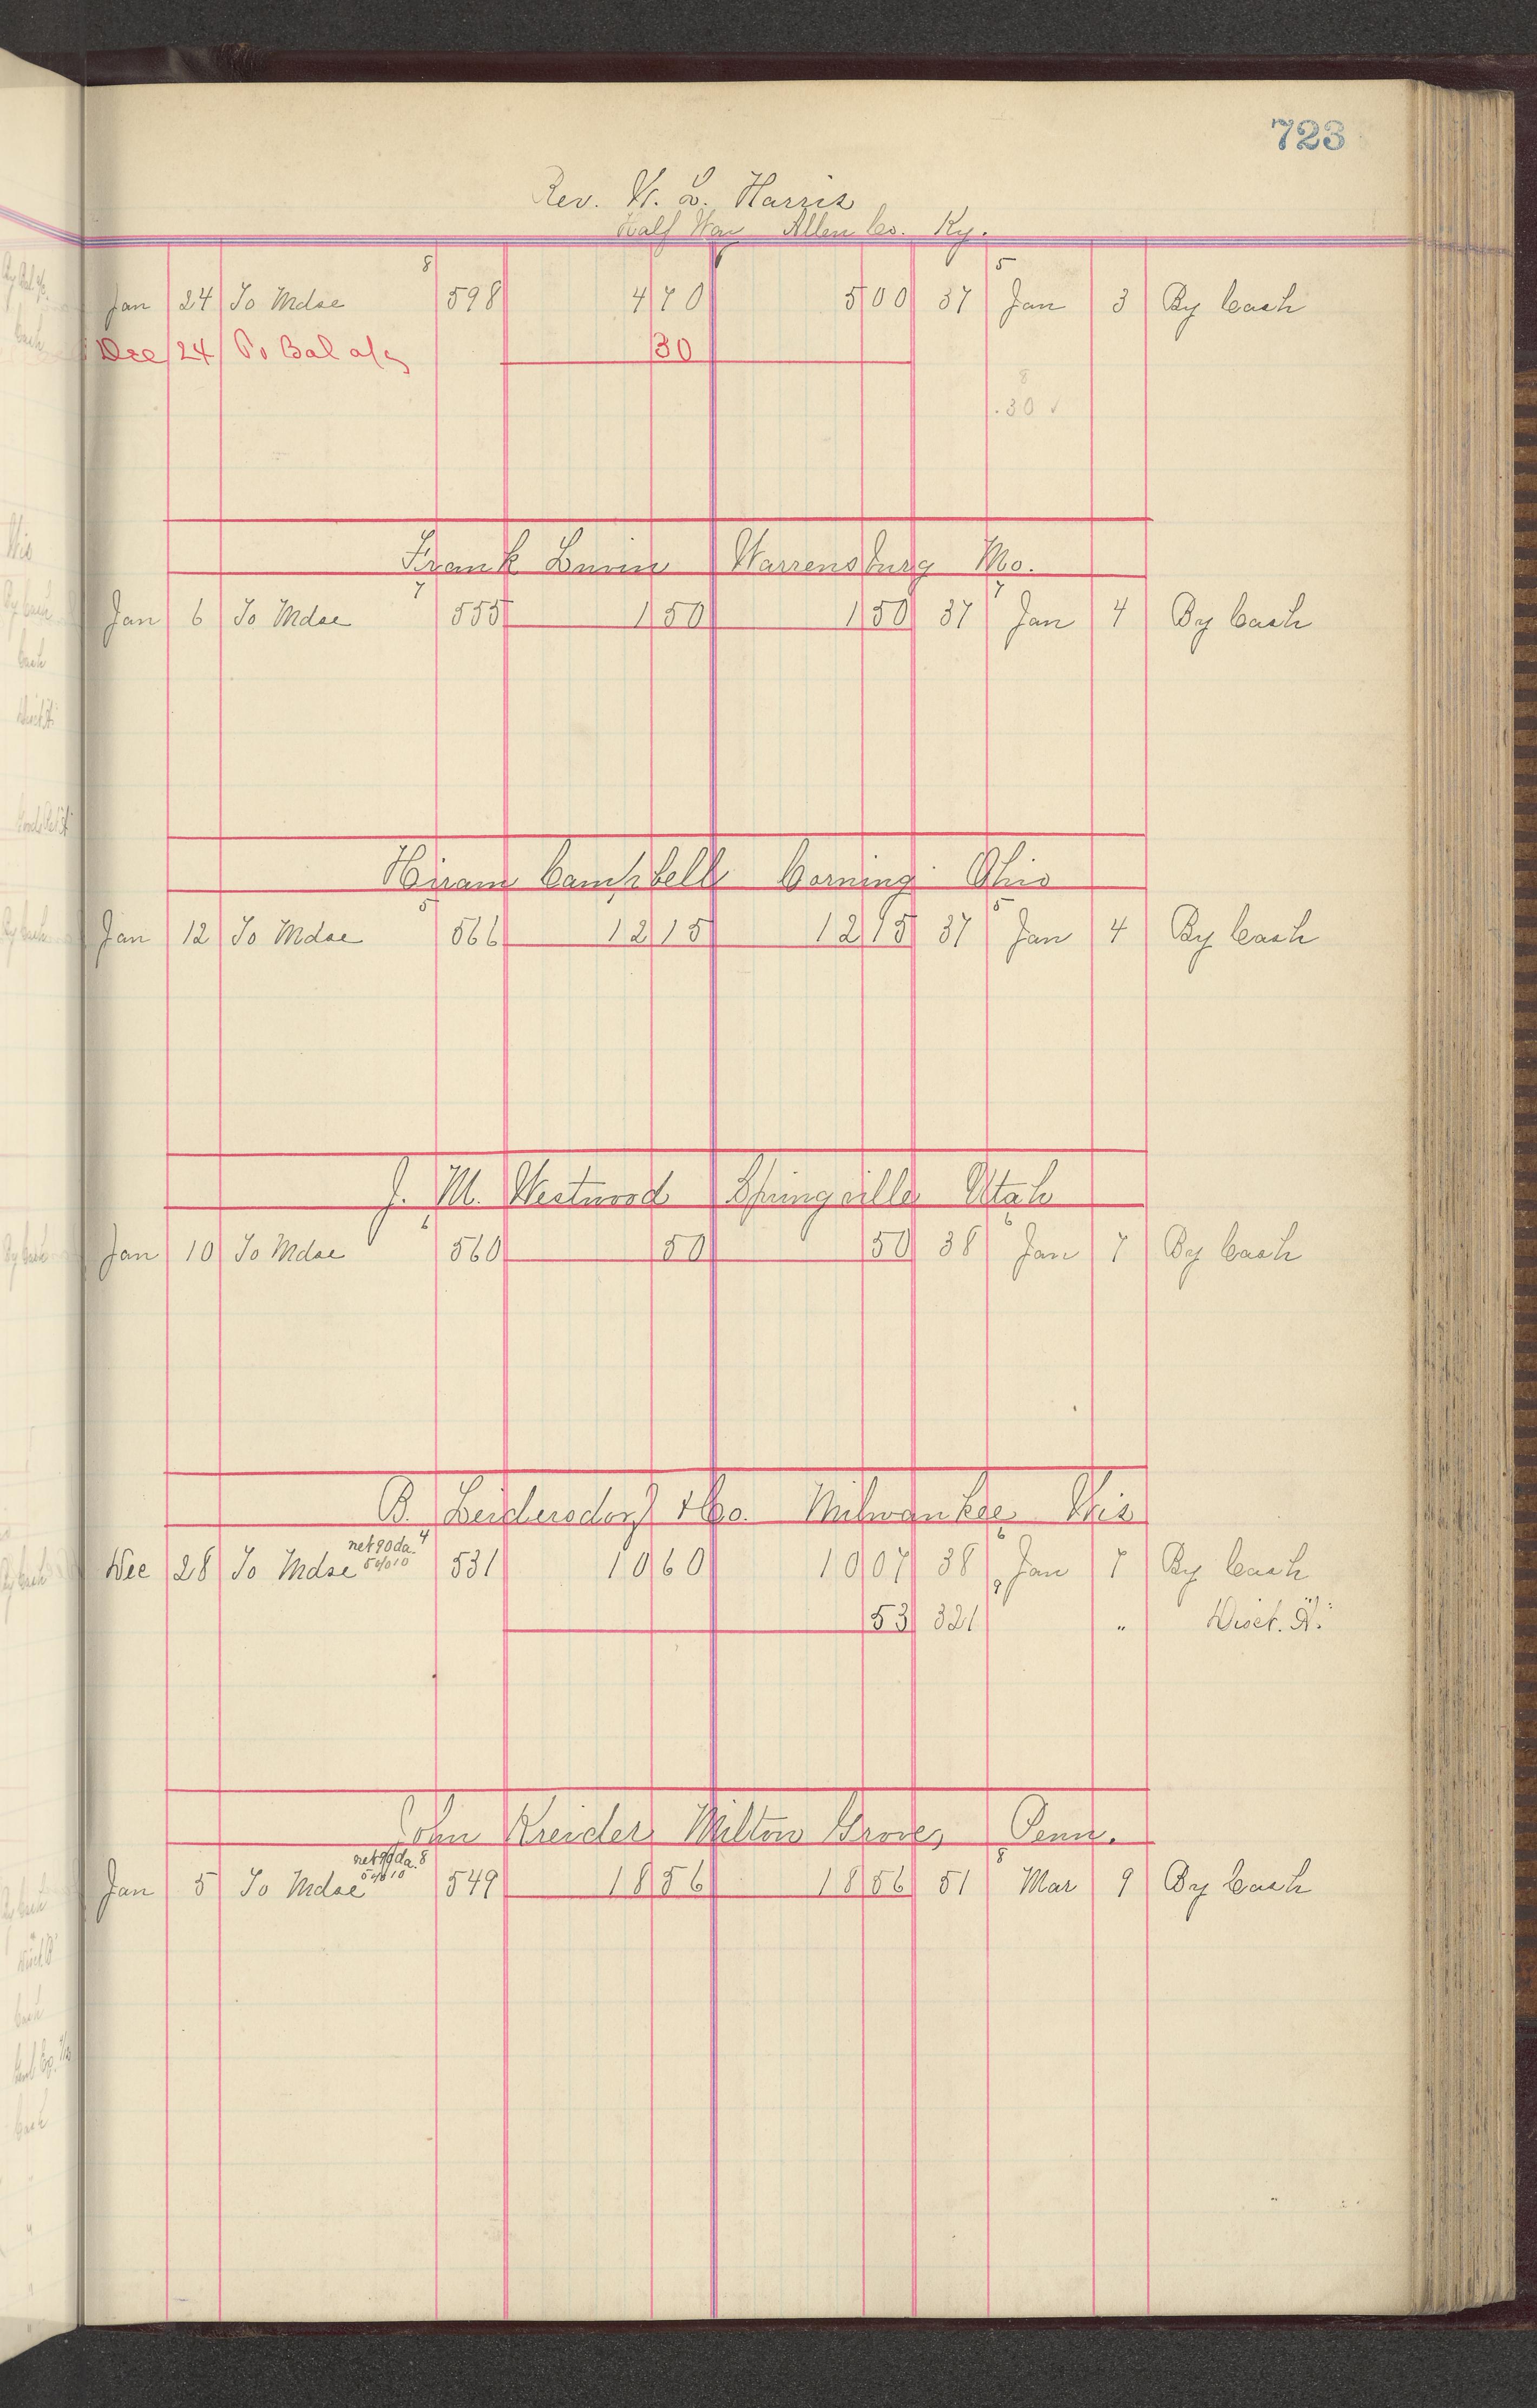 723
Rev. W. L. Harris
Half Way Allen Co. Ky.
8 5
Jan 24 To Mdse 598 4 70 5 00 37 Jan 3 By Cash
Dec 24 To Bal a/c 30
8
.30 ✓
Frank Warrensburg Mo.
7 7
Jan 6 To Mdse 555 1 50 1 50 37 Jan 4 By Cash
Hiram Campbell Corning Ohio
5 5
Jan 12 To Mdse 566 12 15 12 15 37 Jan 4 By Cash
J. M. Westwood Springville Utah
6 6
Jan 10 To Mdse 560 50 50 38 Jan 7 By Cash
B. Leidersdorf & Co. Milwaukee Wis
net 90 da. 4 6
Dec 28 To Mdse 5% 10 531 10 60 10 07 38 Jan 7 By Cash
53 321 " " Disct. "
John Kreider Milton Grove, Penn.
net 90 da. 8 8
Jan 5 To Mdse 5% 10 549 18 56 18 56 51 Mar 9 By Cash